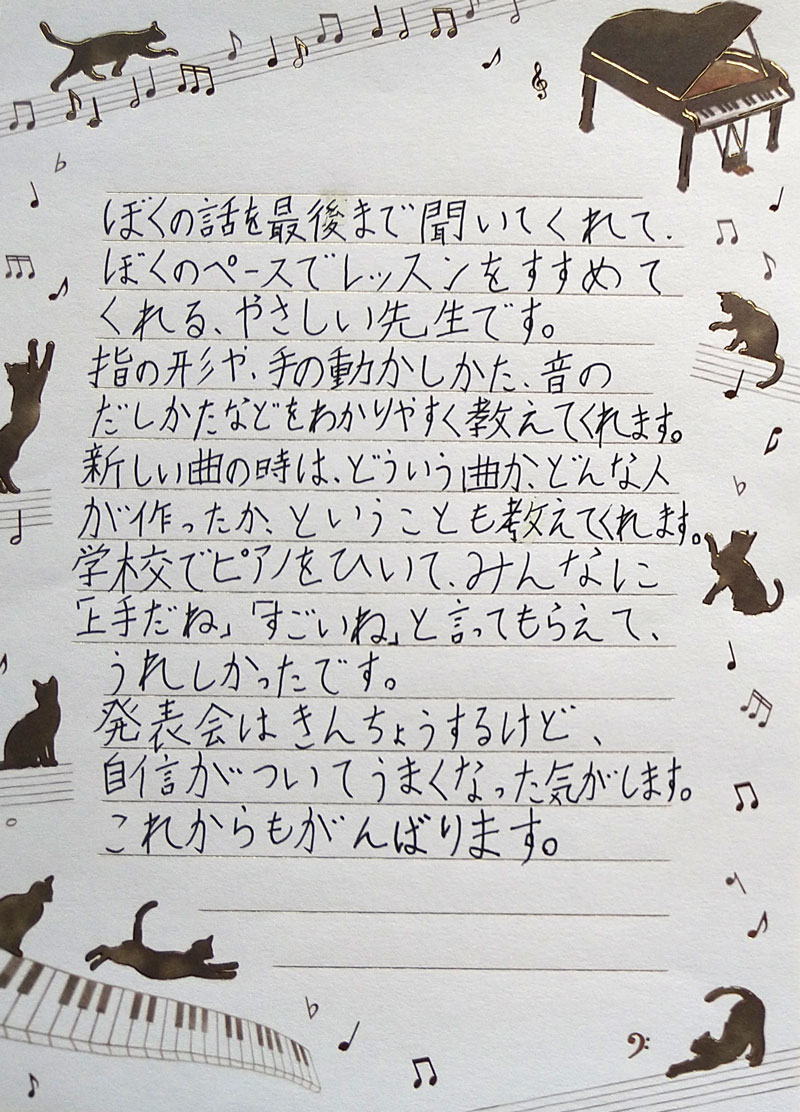 ぼくの話を最後まで聞いてくれて、
ぼくのペースでレッスンをすすめて
くれる、やさしい先生です。
指の形や、手の動かしかた、音の
だしかたなどをわかりやすく教えてくれます。
新しい曲の時は、どういう曲か、どんな人
が作ったか、ということも教えてくれます。
学校でピアノをひいて、みんなに
「上手だね」「すごいね」と言ってもらえて、
うれしかったです。
発表会はきんちょうするけど、
自信がついてうまくなった気がします。
これからもがんばります。